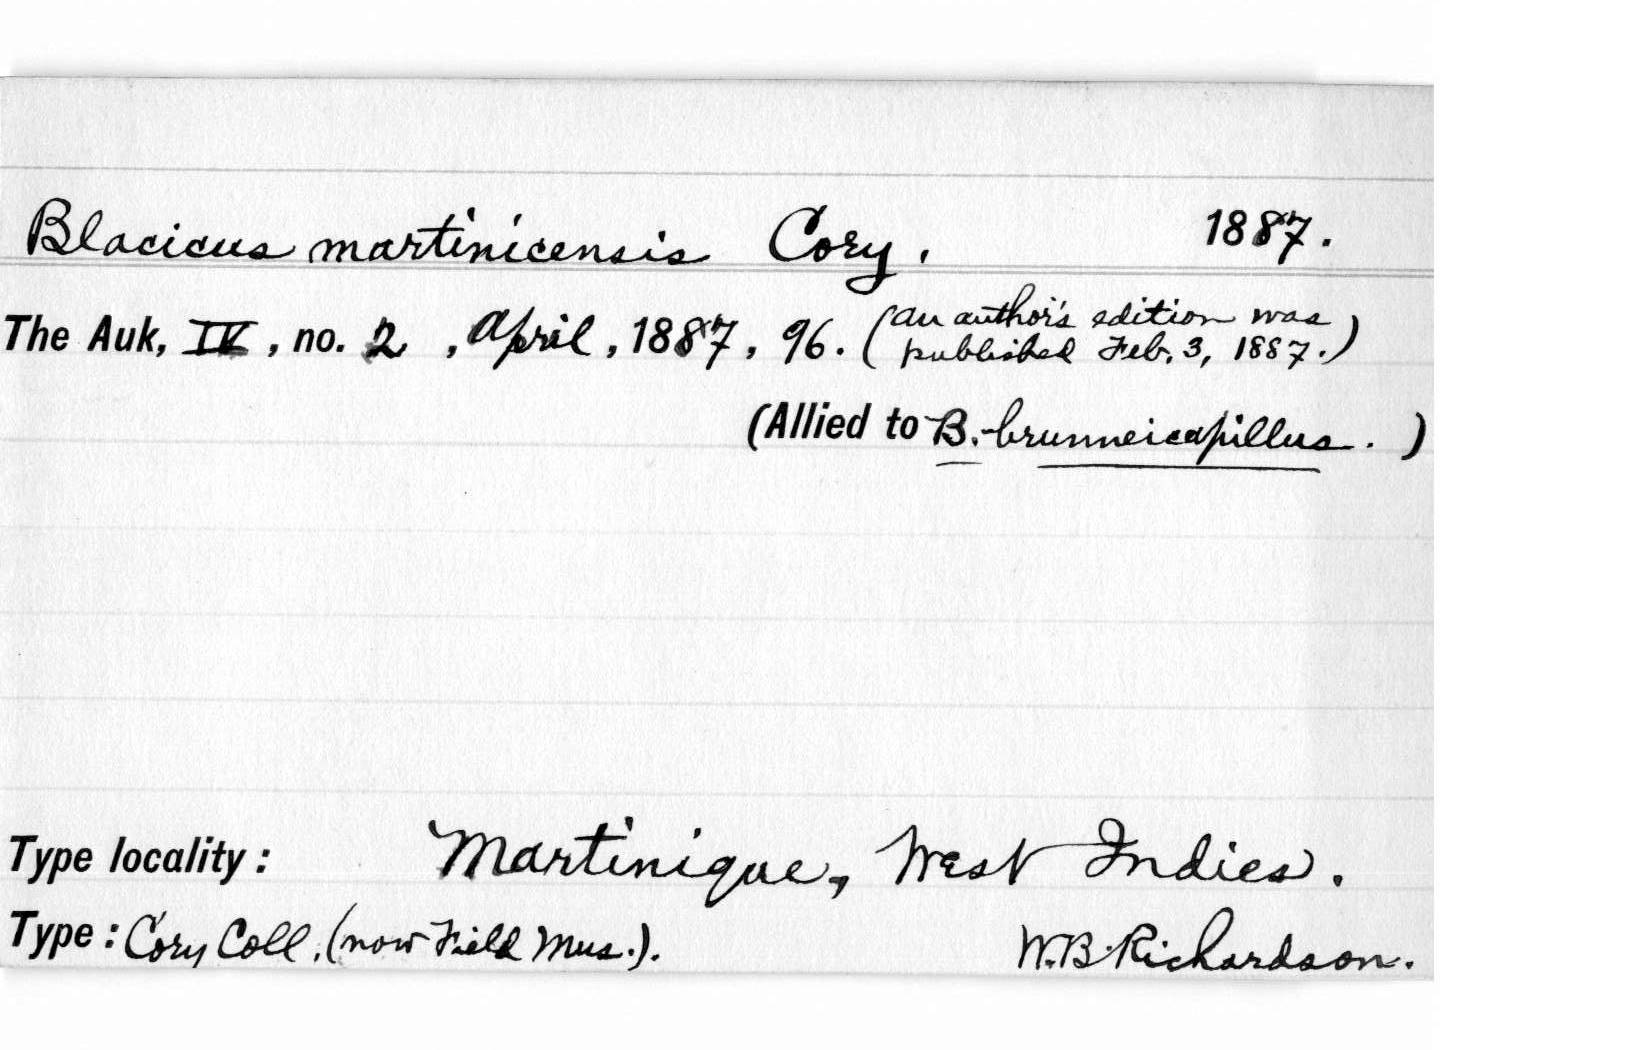 Blacicus martinicensis Cory. 1887.
The Auk, IV, no. 2, April, 1887, 96. (An author's edition was
published Feb. 3, 1887.)
(Allied to B. brunneicapillus. )
Type locality: Martinique, West Indies.
Type: Cory Coll. (now Field Mus.). W.B. Richardson.